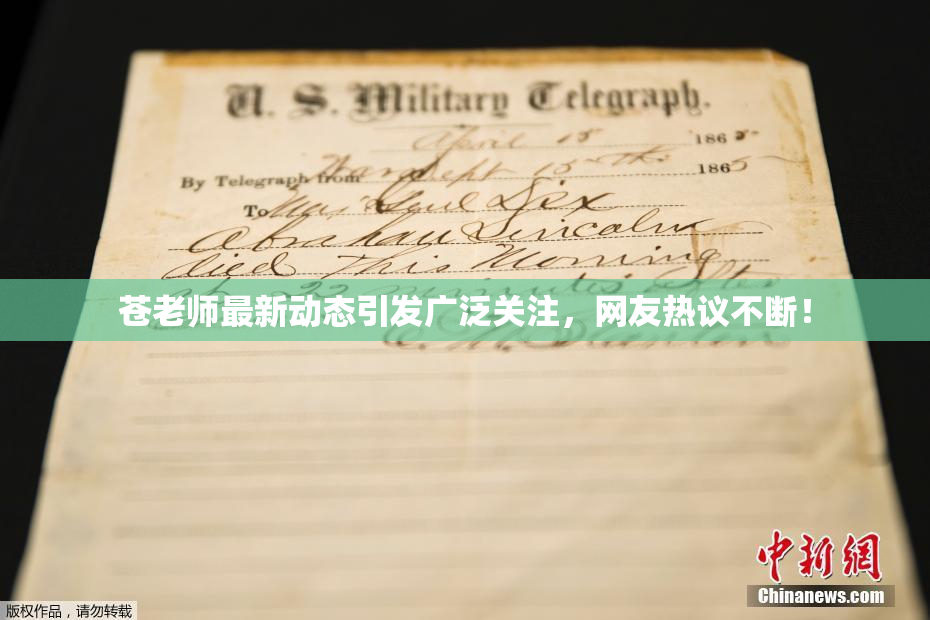 U. S. Military Telegraph.
April 15 1865
By Telegraph from War Dept 15th 1865
To Maj Genl Dix
Abraham Lincoln
died This Morning
at 22 minutes after
苍老师最新动态引发广泛关注，网友热议不断！
E. M. Stanton
中新网
Chinanews.com
版权作品，请勿转载